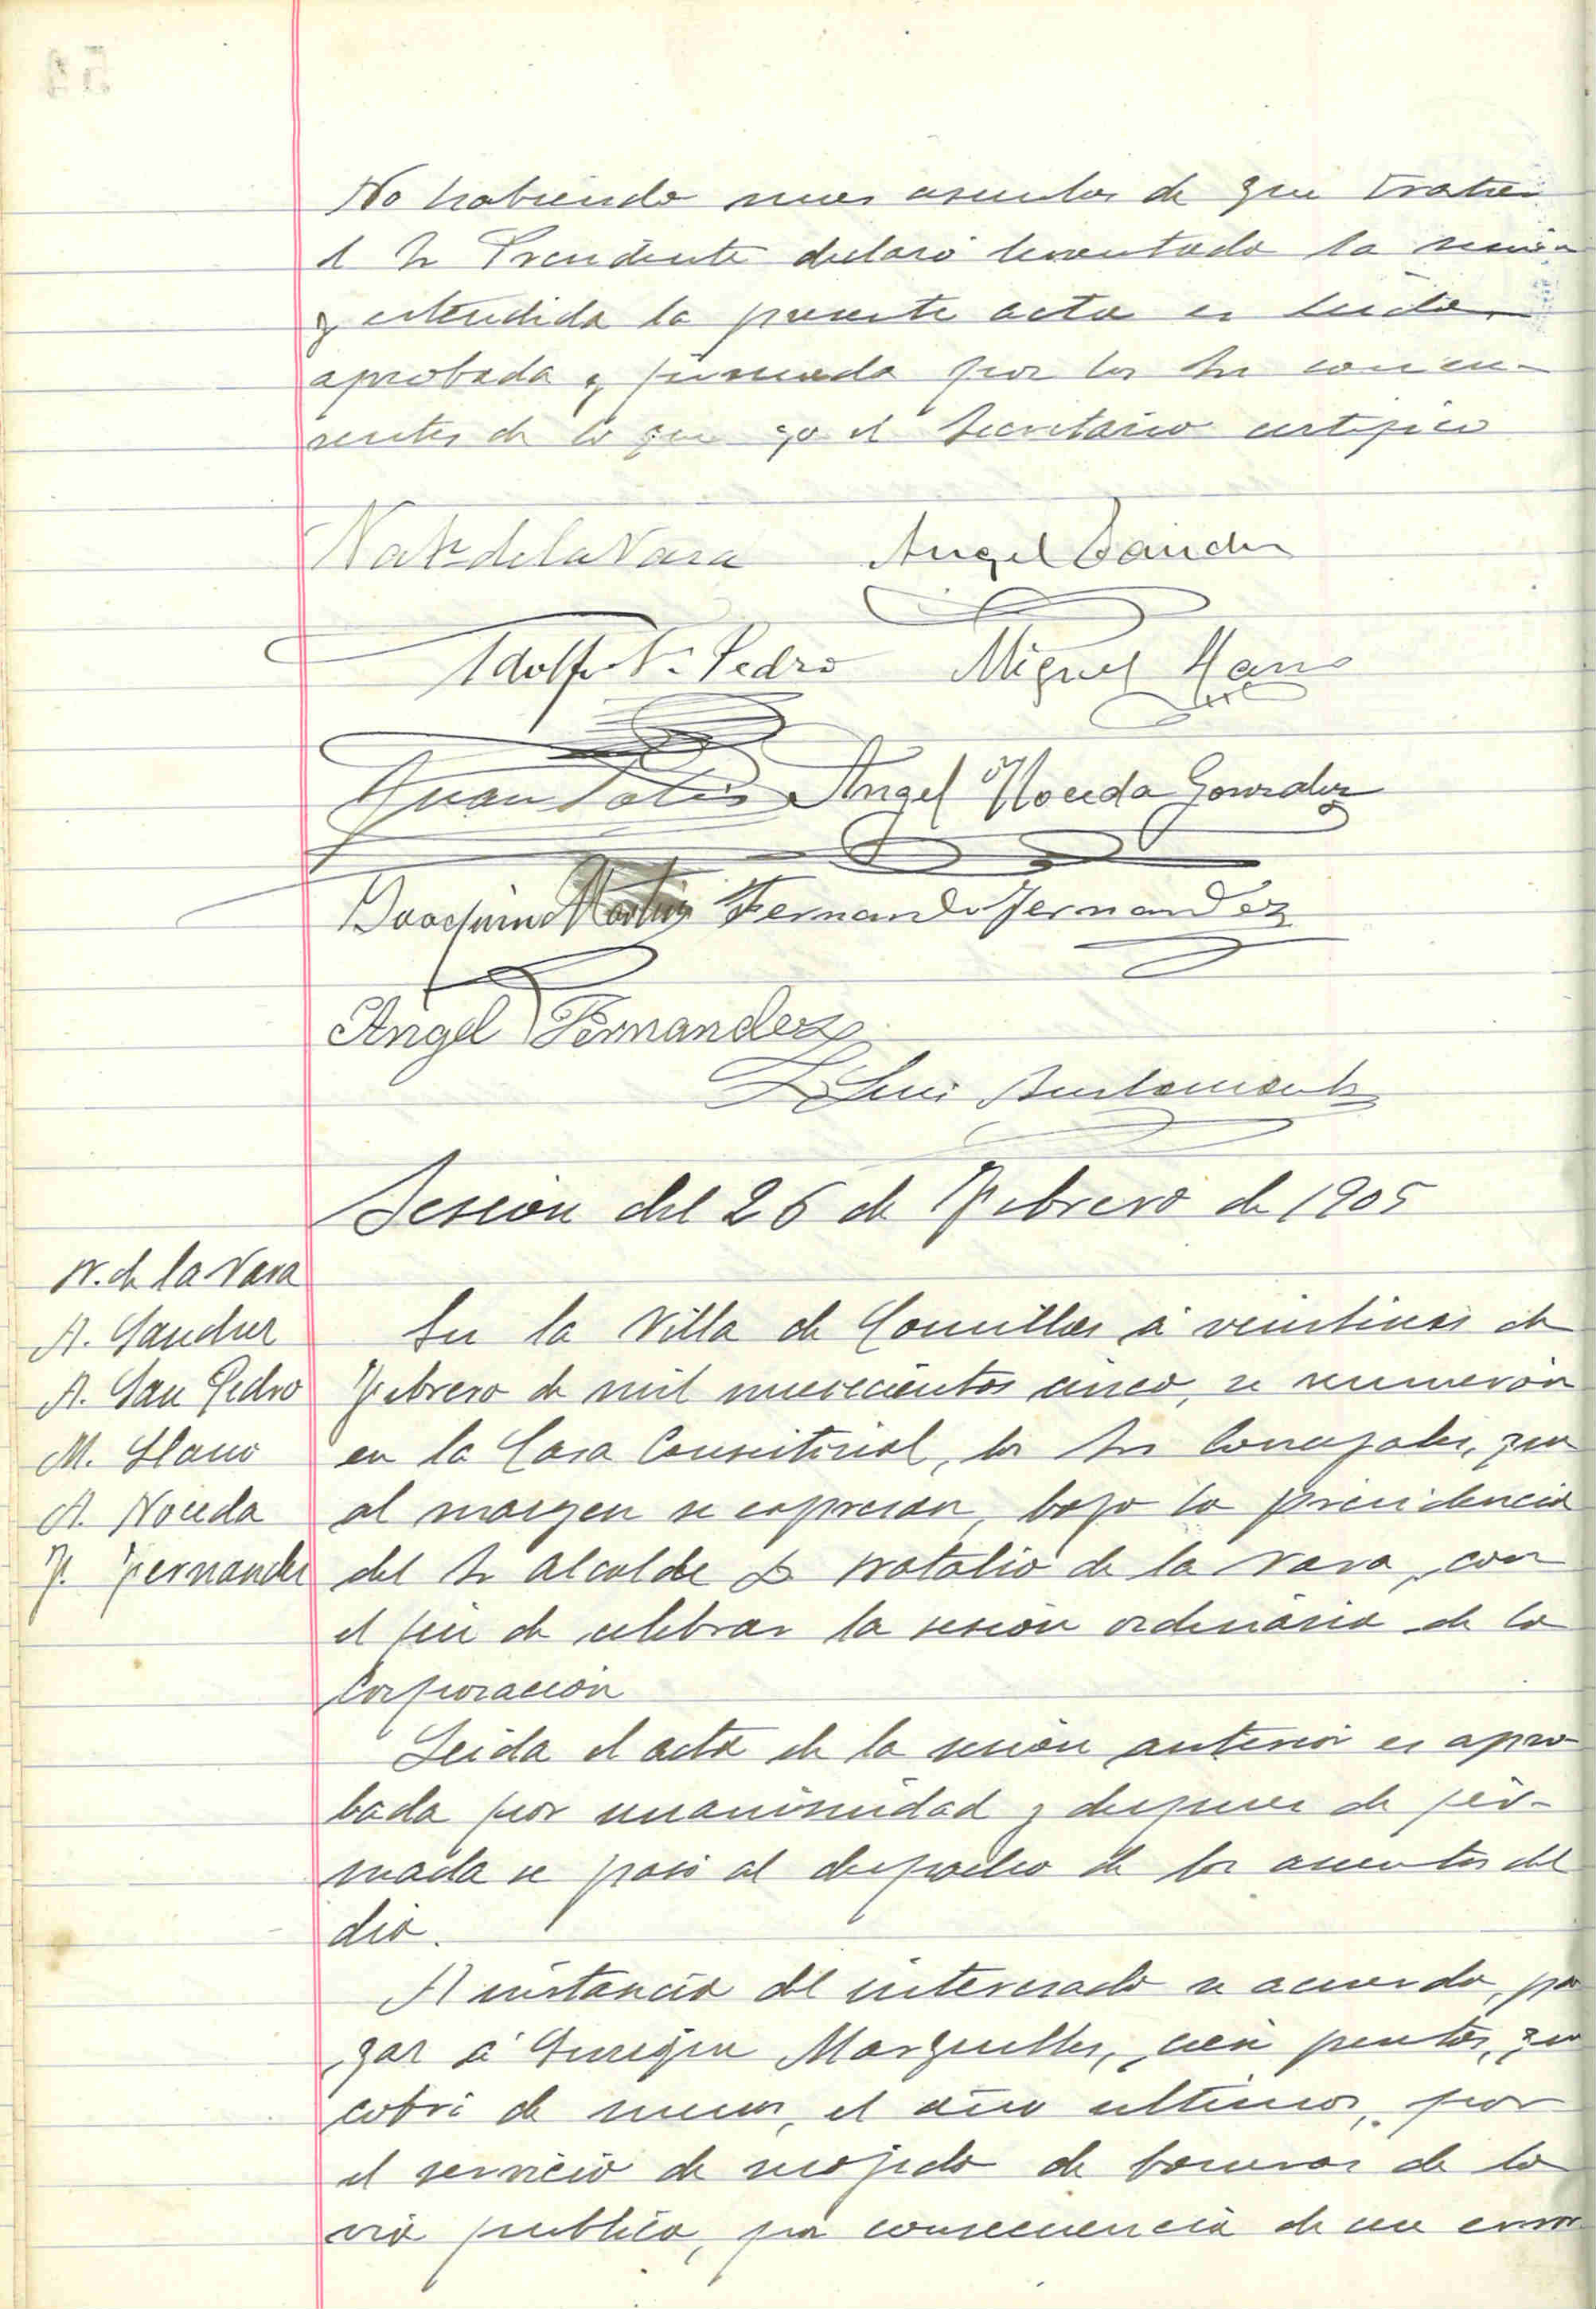 No habiendo mas asuntos de que tratar
el Sr Presidente declaró levantada la sesion
y estendida la presente acta es leida,
aprobada y firmada por los Srs concu-
rrentes de lo que yo el Secretario certifico
Nat. de la Vara Angel Sanchez
Adolfo S. Pedro Miguel Llano
Juan Angel Noceda Gonzalez
Joaquin Martin Fernando Fernandez
Angel Fernandez
Luis Bustamante
Sesion del 26 de Febrero de 1905
N. de la Vara
A. Sanchez
A. San Pedro
M. Llano
A. Noceda
F. Fernandez
En la Villa de Comillas á veintiseis de
Febrero de mil novecientos cinco, se reunieron
en la Casa Consistorial, los Srs Concejales, que
al margen se espresan, bajo la presidencia
del Sr Alcalde D Natalio de la Vara, con
el fin de celebrar la sesion ordinaria de la
Corporacion
Leida el acta de la sesion anterior es apro-
bada por unanimidad y despues de fir-
mada se pasó al despacho de los asuntos del
dia.
A instancia del interesado se acuerda, pa
gar á Marquelles, cien pesetas, que
cobró de menos, el año ultimo, por
el servicio de recojida de basuras de la
via publica, por consecuencia de un error